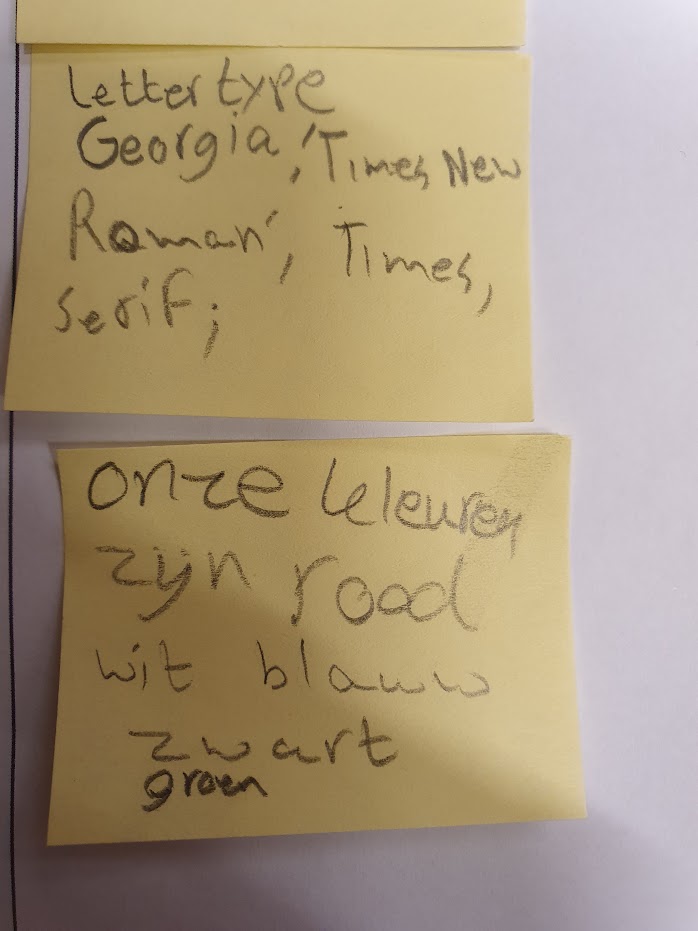 Lettertype
Georgia, 'Times New
Roman', Times,
serif;
onze kleuren
zijn rood
wit blauw
zwart
groen